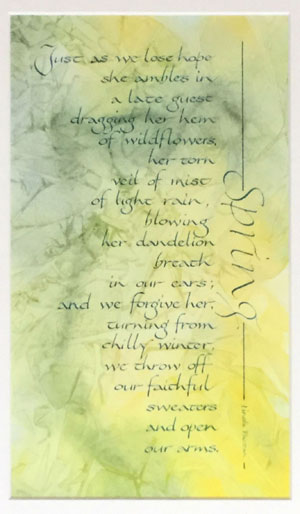 Just as we lose hope
she ambles in
a late guest
dragging her hem
of wildflowers,
her torn
veil of mist
of light rain,
blowing
her dandelion
breath
in our ears;
and we forgive her,
turning from
chilly winter,
we throw off
our faithful
sweaters
and open
our arms.
Spring